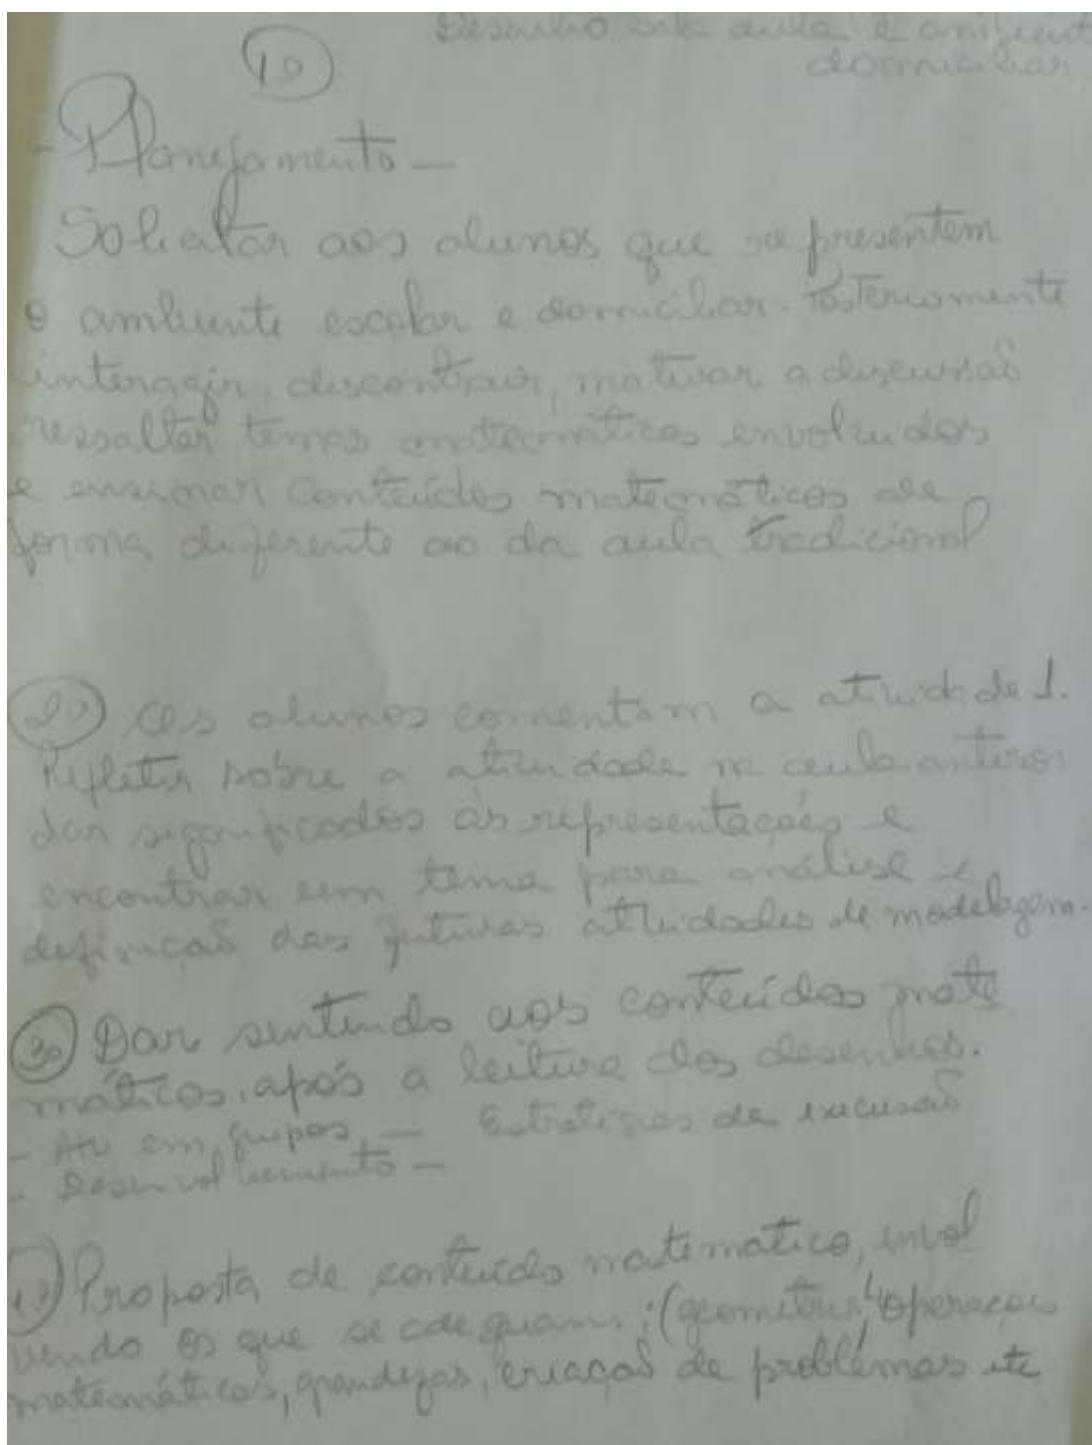 Desenho sala aula e ambient
domiciliar
1º
- Planejamento -
Solicitar aos alunos que representem
o ambiente escolar e domiciliar. Posteriormente
interagir, descontrair, motivar a discussão
ressaltar temas matemáticos envolvidos
e ensinar conteúdos matemáticos de
forma diferente ao da aula tradicional
2º Os alunos comentam a atividade 1.
Refletir sobre a atividade na aula anterior
dar significados às representações e
encontrar um tema para análise e
definição das futuras atividades de modelagem.
3º Dar sentido aos conteúdos mate
máticos, após a leitura dos desenhos.
- Atv em grupos - Estratégias de execusão
- Desenvolvimento -
4º Proposta de conteúdo matemático, envol
vendo os que se adequam; (geometria, 4 operações
matemáticas, grandezas, criação de problemas etc